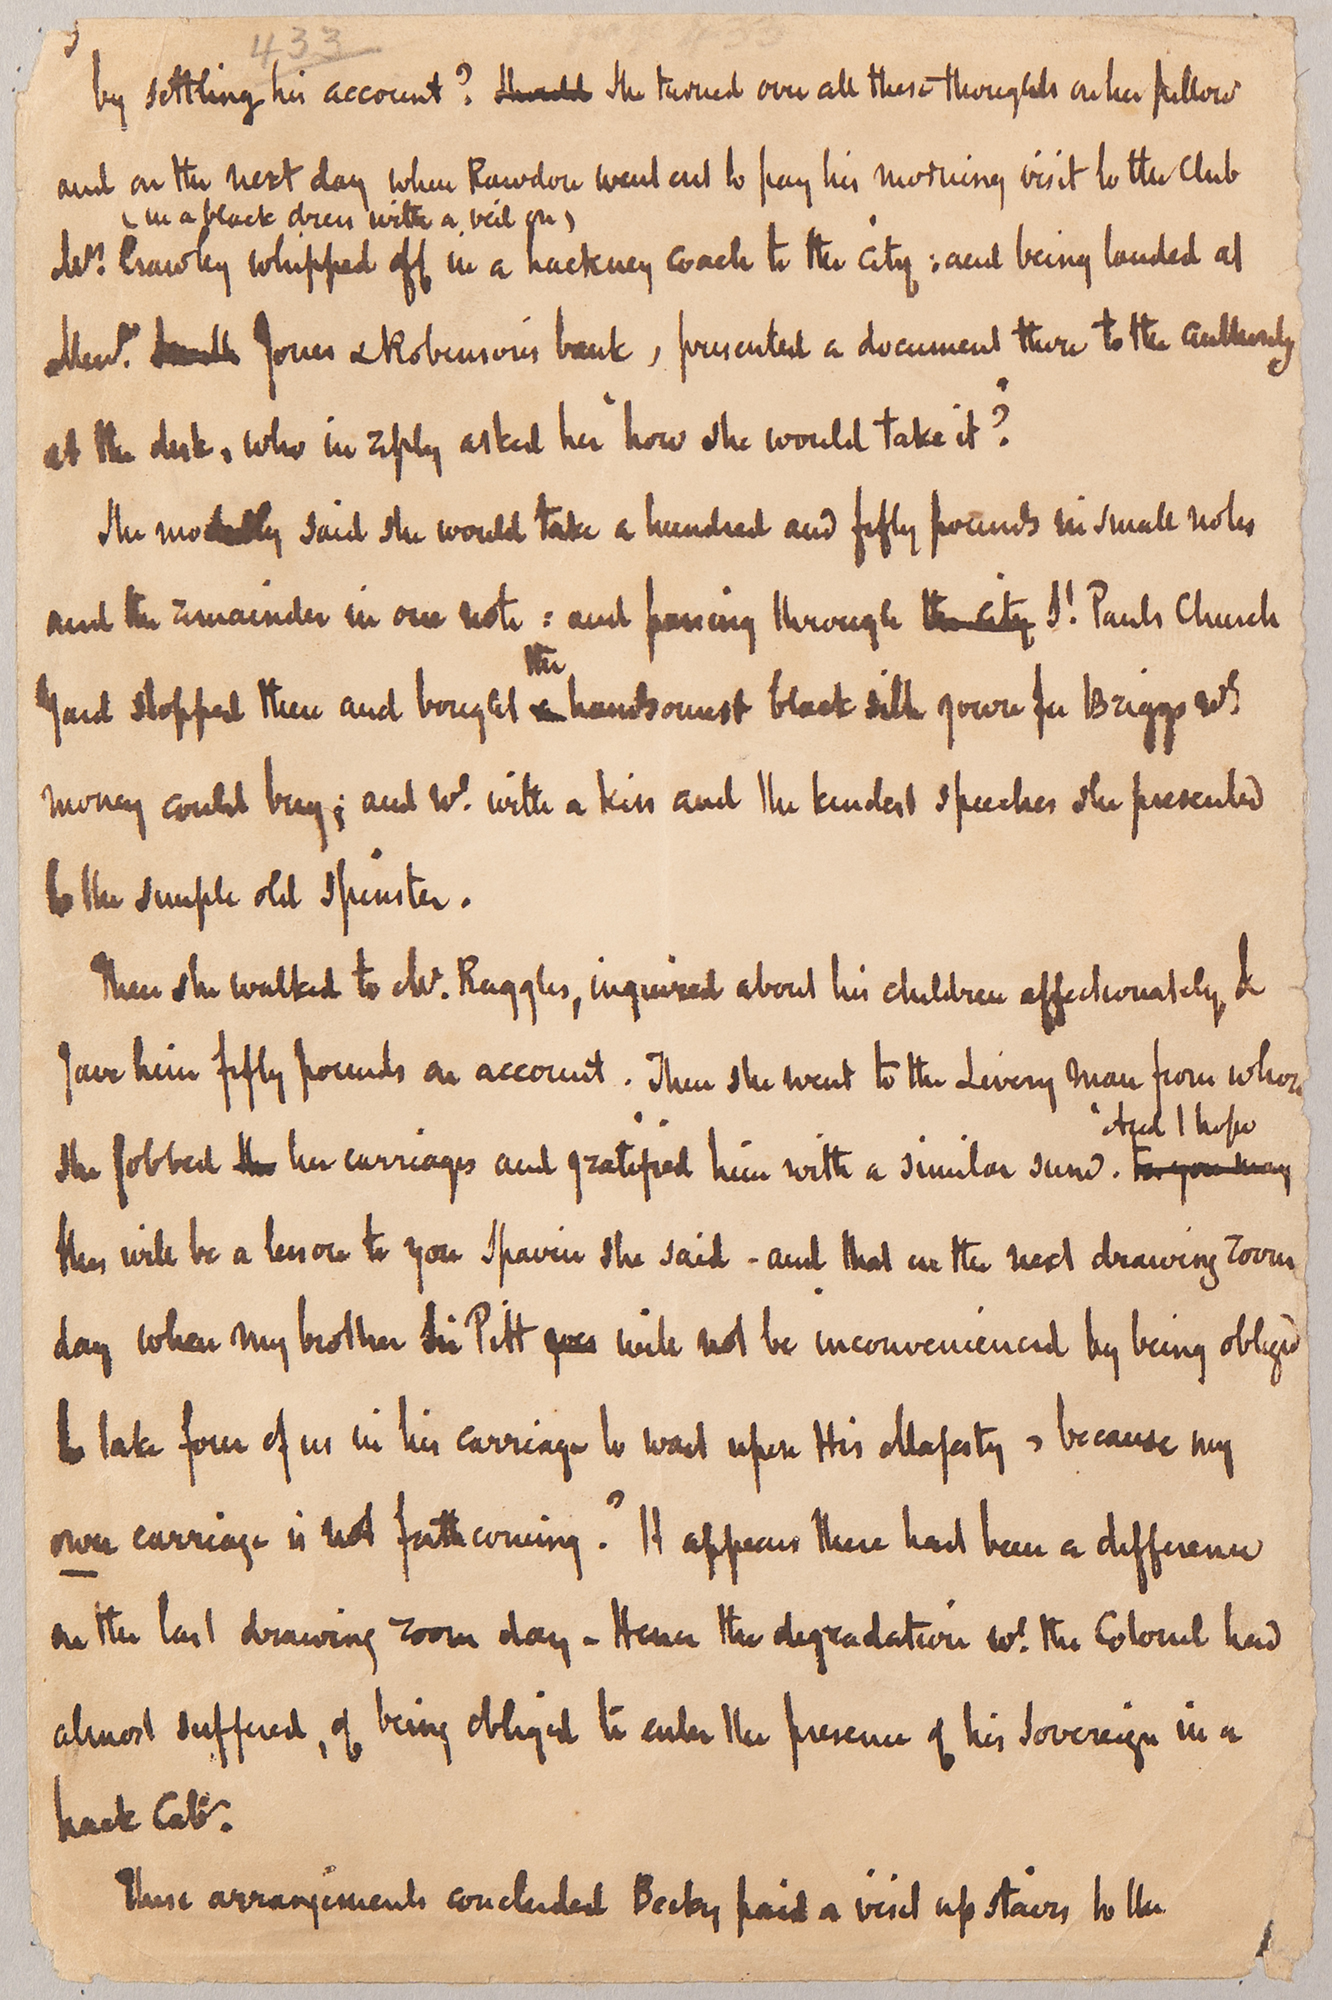 433
by settling his account? Should She turned over all these thoughts on her pillow
and on the next day when Rawdon went out to pay his morning visit to the Club
(in a black dress with a veil on)
Mrs. Crawley whipped off in a hackney coach to the City: and being landed at
Messrs. Jones & Robinson's bank, presented a document there to the authority
at the desk, who in reply asked her "how she would take it"?
She modestly said she would take a hundred and fifty pounds in small notes
and the remainder in one note: and passing through the City St. Pauls Church
the
Yard stopped there and bought a handsomest black silk gown for Briggs wh.
money could buy; and wh. with a kiss and the kindest speeches she presented
to the simple old spinster.
Then she walked to Mr. Raggles, inquired about his children affectionately, &
gave him fifty pounds on account. Then she went to the Livery man from whom
"And I hope
she jobbed the her carriages and gratified him with a similar sum. for you may
this will be a lesson to you Spavin she said - and that on the next drawing room
day when my brother Sir Pitt will not be inconvenienced by being obliged
to take four of us in his carriage to wait upon His Majesty, because my
own carriage is not forthcoming." It appears there had been a difference
on the last drawing room day - Hence the degradation wh. the Colonel had
almost suffered, of being obliged to enter the presence of his Sovereign in a
hack Cab.
These arrangements concluded Becky paid a visit up stairs to the